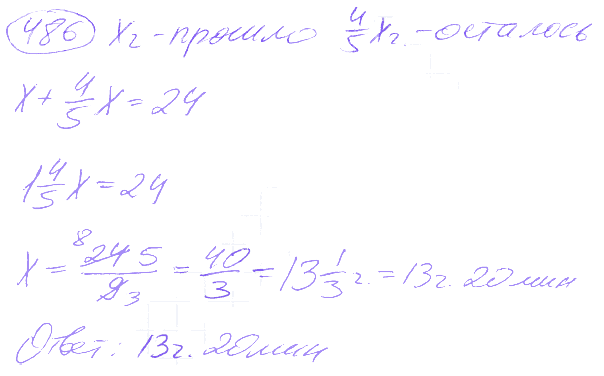 486 х г - прошло 4/5 х г. - осталось
х + 4/5 х = 24
1 4/5 х = 24
х = 8 24 5 / 9 3 = 40/3 = 13 1/3 г. = 13 г. 20 мин
Ответ: 13 г. 20 мин